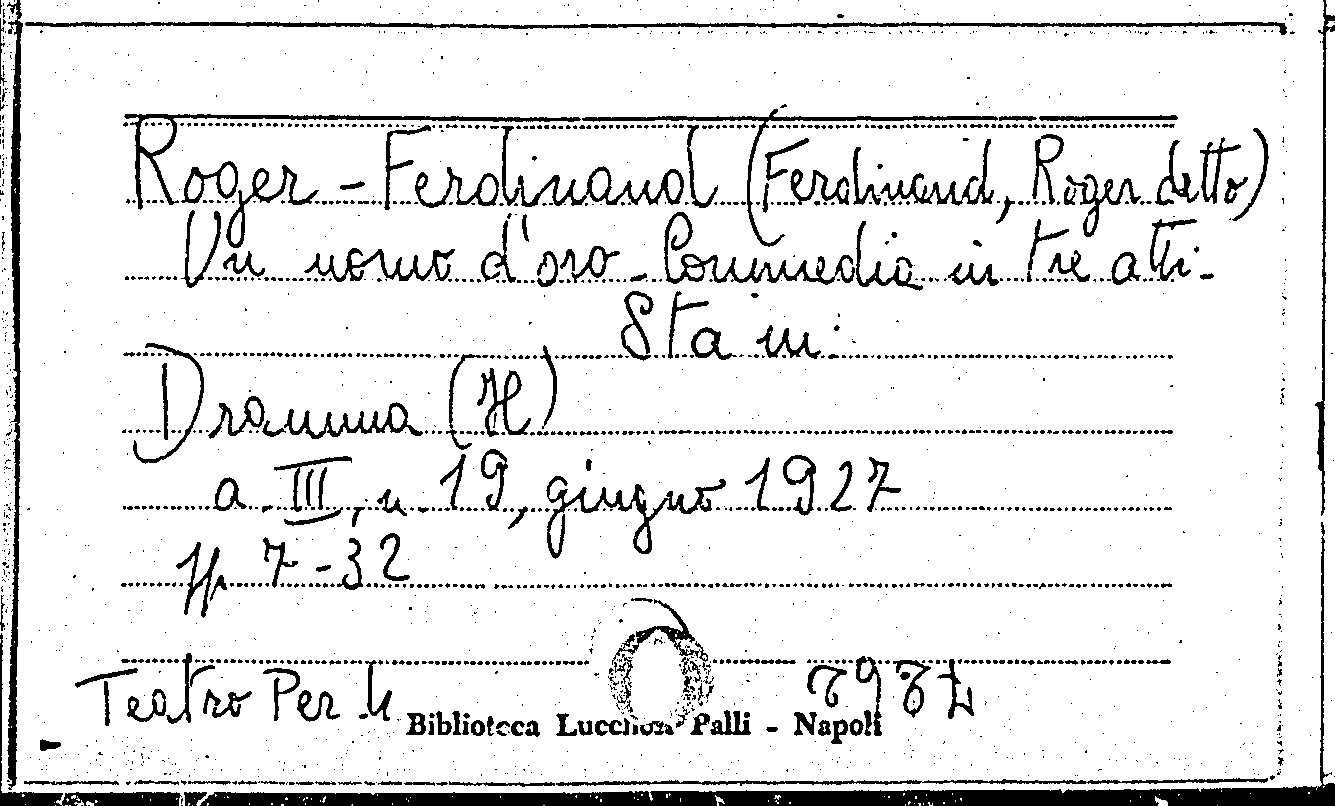 Roger - Ferdinand (Ferdinand, Roger detto)
Un uomo d'oro - Commedia in tre atti -
Sta in:
Dramma (Il)
a. III, n. 19, giugno 1927
pp. 7-32
Teatro Per. 4
Biblioteca Lucchesi Palli - Napoli